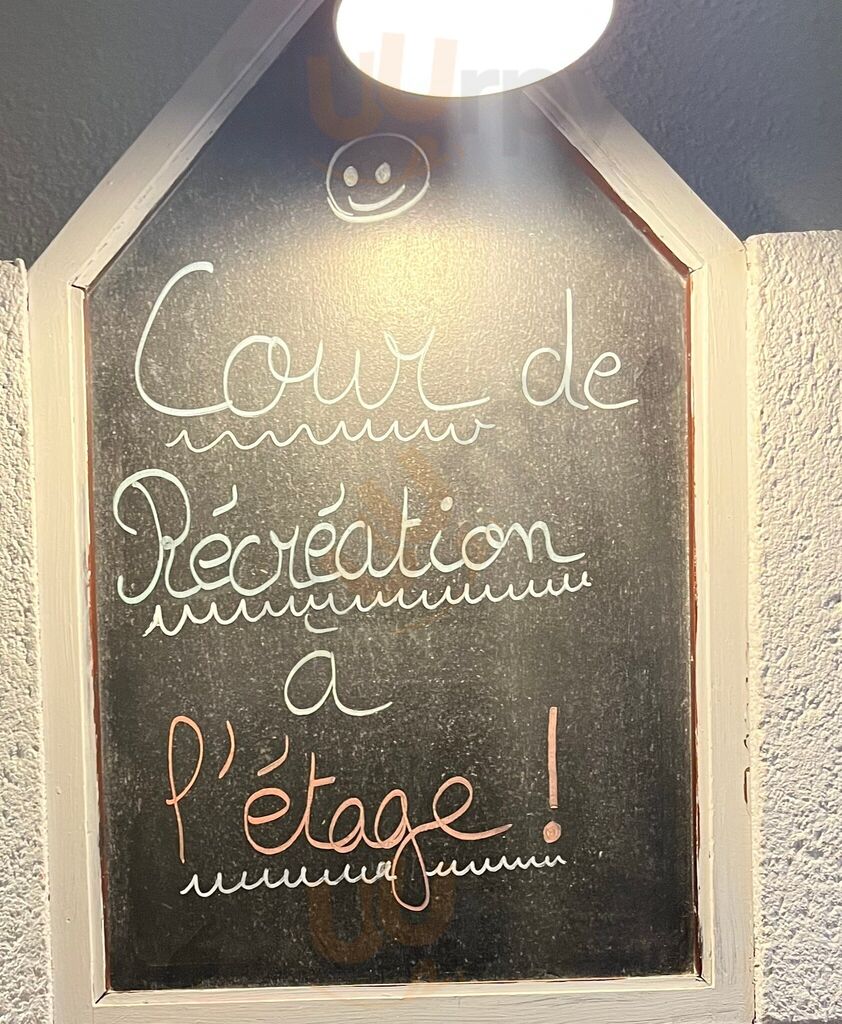 Cour de
Récréation
à
l'étage !